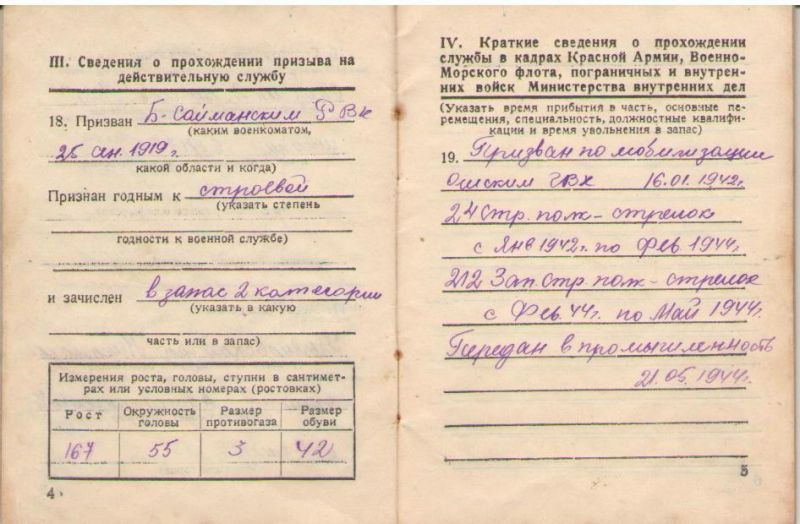 III. Сведения о прохождении призыва на
действительную службу
18. Призван Б-Сойманским РВк
(каким военкоматом,
25 ян. 1919г.
какой области и когда)
Признан годным к строевой
(указать степень
годности к военной службе)
и зачислен в запас 2 категории
(указать в какую
часть или в запас)
Измерения роста, головы, ступни в сантимет-
рах или условных номерах (ростовках)
Рост Окружность головы Размер противогаза Размер обуви
167 55 3 42
4
IV. Краткие сведения о прохождении
службы в кадрах Красной Армии, Военно-
Морского флота, пограничных и внутрен-
них войск Министерства внутренних дел
(Указать время прибытия в часть, основные пе-
ремещения, специальность, должностные квалифи-
кации и время увольнения в запас)
19. Призван по мобилизации
Ошским ГВК 16.01.1942г.
24 Стр. полк - стрелок
с Янв 1942г. по Фев. 1944г.
212 Зап. Стр. полк - стрелок
с Фев. 44г. по Май 1944г.
Передан в промышленность
21.05.1944г.
5